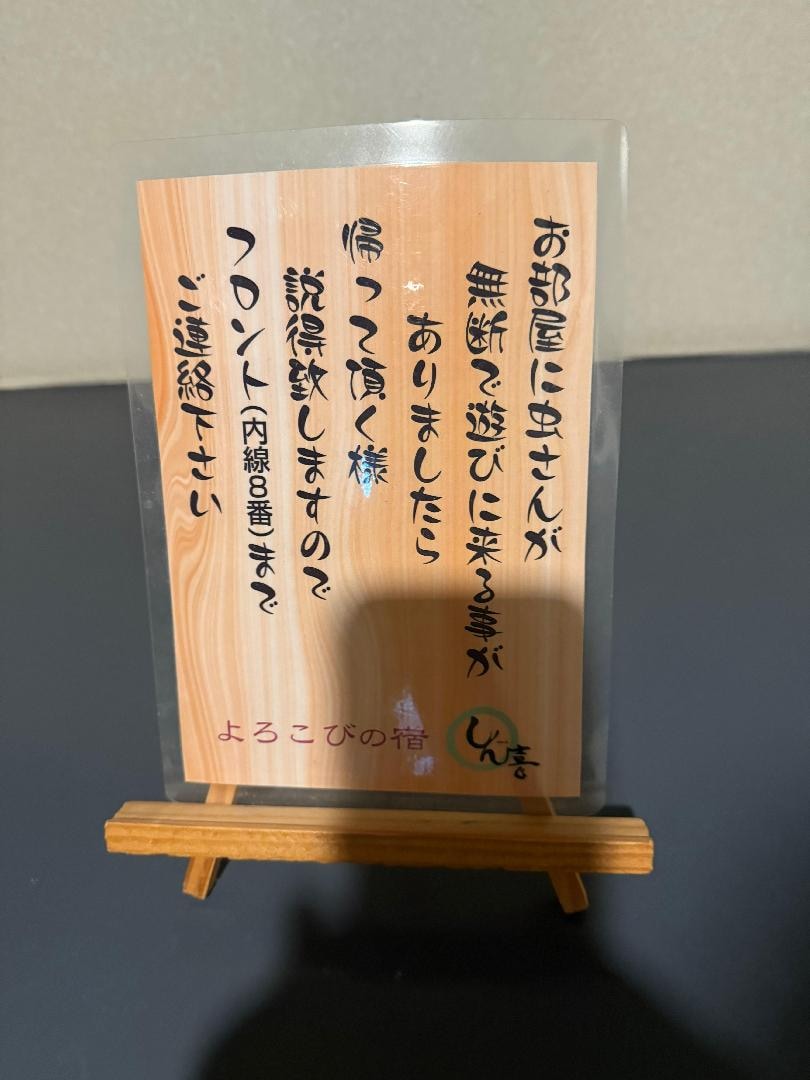 お部屋に虫さんが
無断で遊びに来る事が
ありましたら
帰って頂く様
説得致しますので
フロント(内線8番)まで
ご連絡下さい
よろこびの宿
しん喜